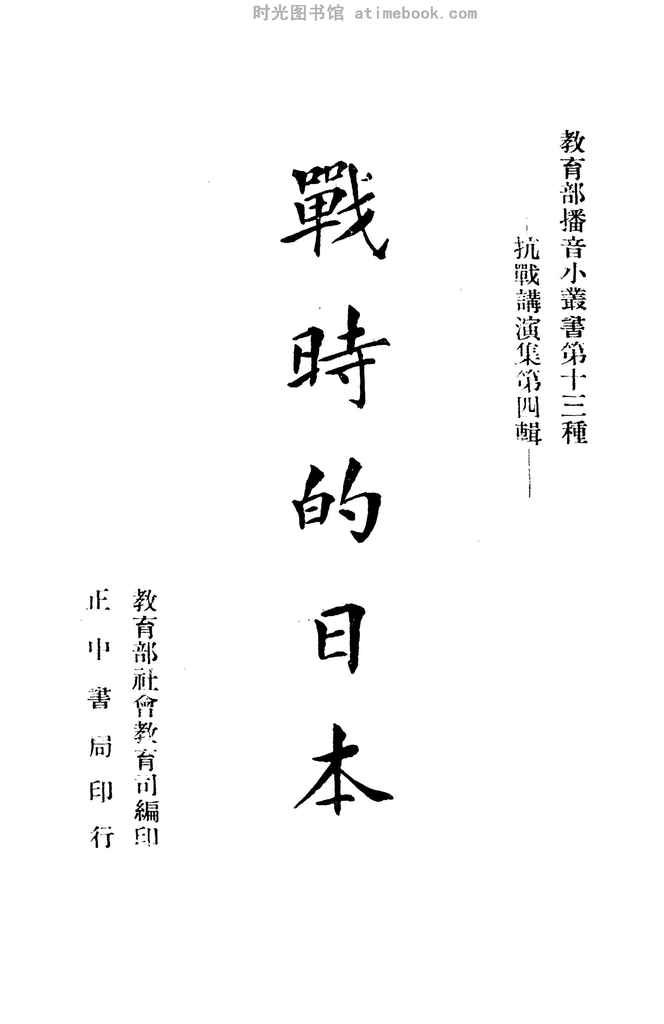 时光图书馆 atimebook.com
教育部播音小叢書第十三種
—抗戰講演集第四輯—
戰時的日本
教育部社會教育司編印
正中書局印行